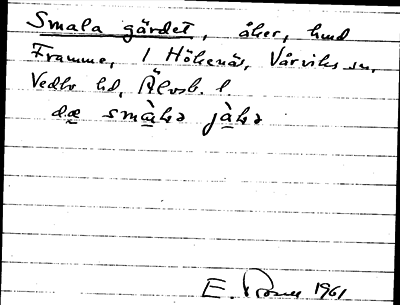 Smala gärdet, åker, hmd
Framme, 1 Hökenäs, Vårviks sn,
Vedbo hd, Älvsb. l.
dæ
E. 1961